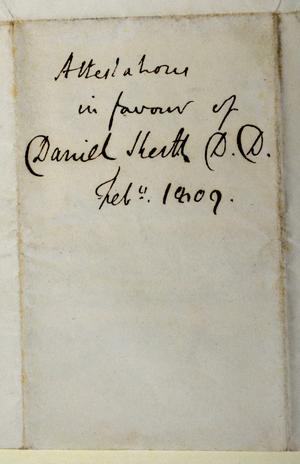 Attestations
in favour of
Daniel D.D.
Feby. 1809.